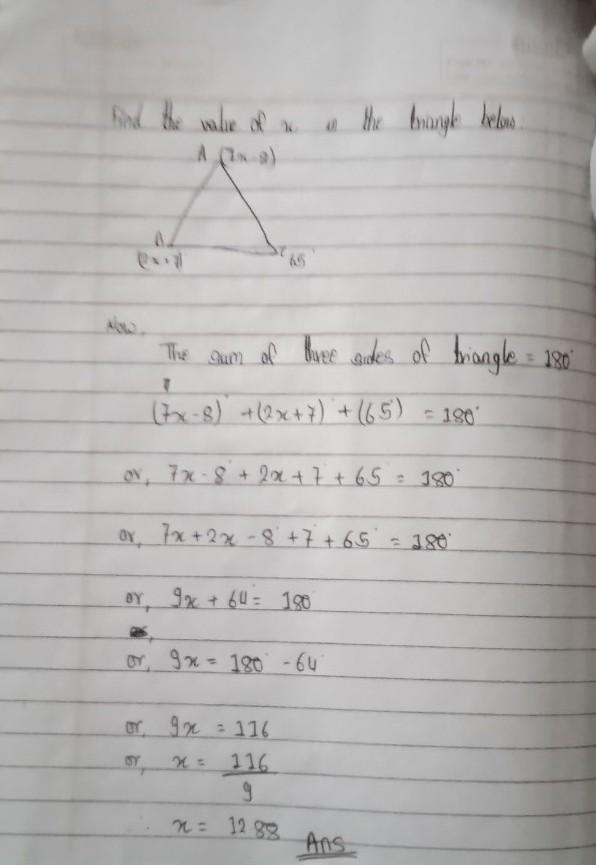 Find the value of x in the triangle below.
A (7x-8)
A
(2x+7)
C 65°
Now,
The sum of three sides of triangle = 180°
(7x-8)° + (2x+7)° + (65°) = 180°
or, 7x - 8° + 2x + 7 + 65 = 180°
or, 7x + 2x - 8° + 7° + 65° = 180°
or, 9x + 64° = 180
or, 9x = 180° - 64°
or, 9x = 116
or, x = 116
9
∴ x = 12.88 Ans